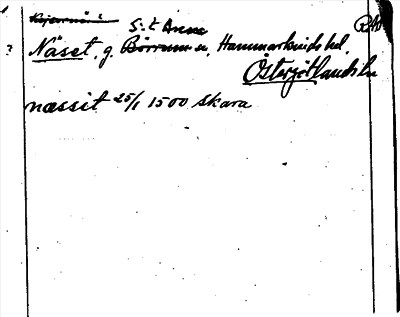 S:t Anna RAp
? Näset, g. Börrum sn, Hammarkinds hd,
Östergötlands län
næssit 25/1 1500 Skara